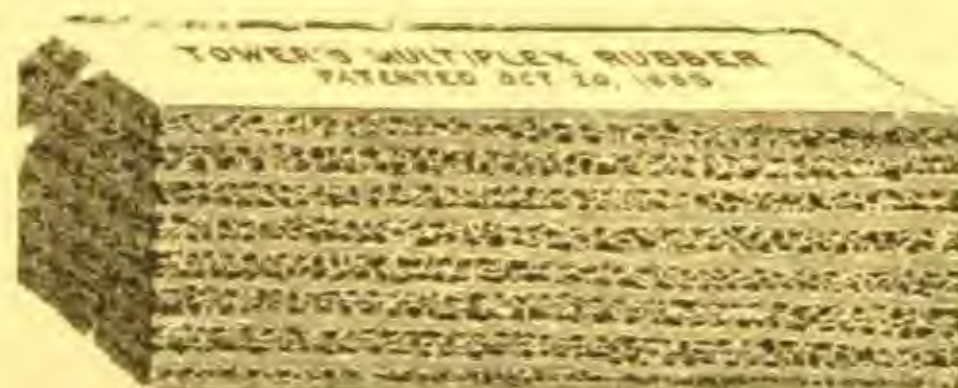 TOWER'S MULTIPLEX RUBBER
PATENTED OCT 20,